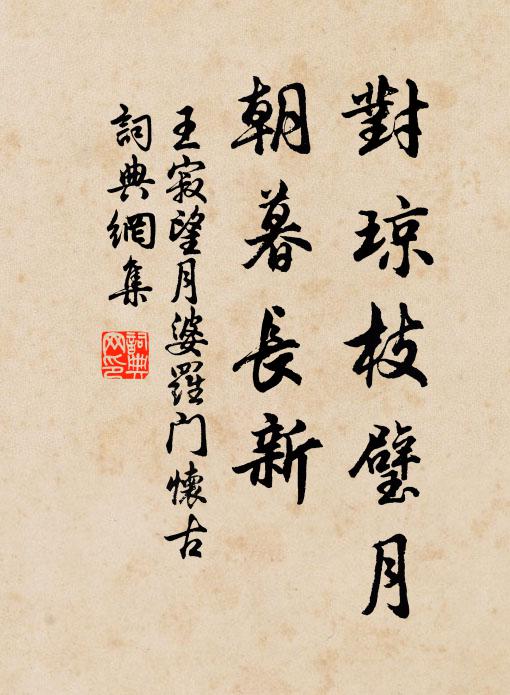 對琼枝璧月
朝暮長新
王寂望月婆羅门懷古
詞典網集
詞典
网印